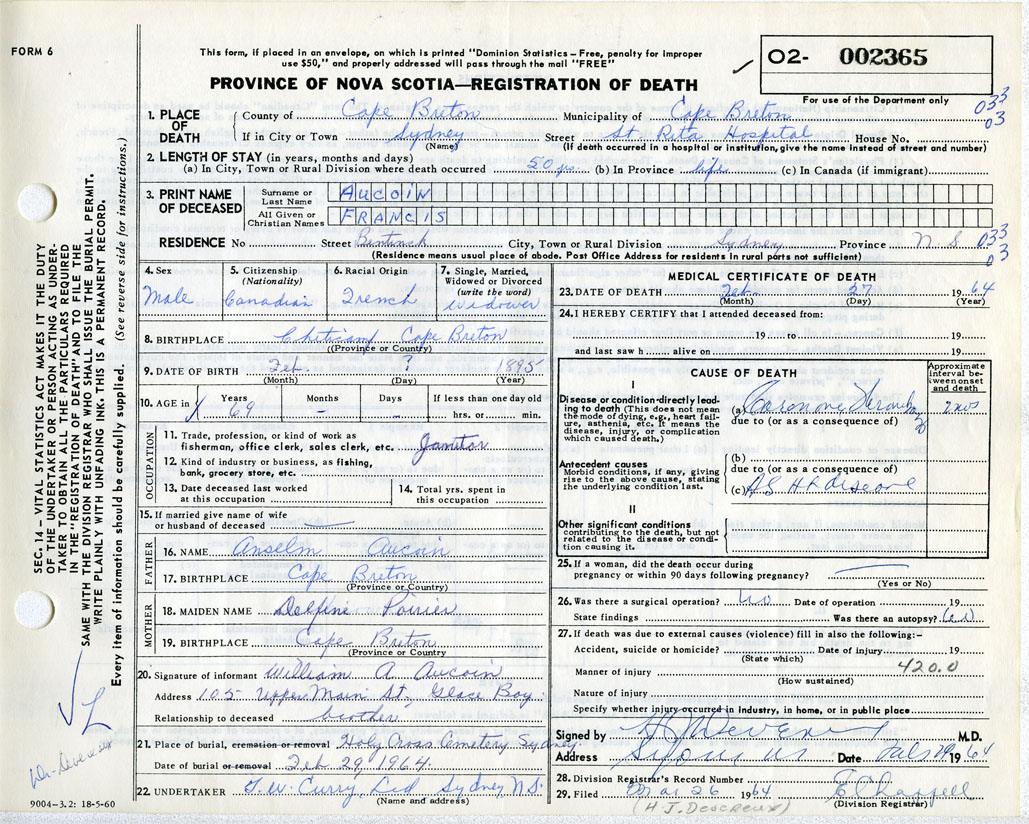 FORM 6
This form, if placed in an envelope, on which is printed "Dominion Statistics – Free, penalty for improper
use $50," and properly addressed will pass through the mail "FREE"
PROVINCE OF NOVA SCOTIA—REGISTRATION OF DEATH
02- 002365
For use of the Department only
033
03
1. PLACE OF DEATH
County of Cape Breton Municipality of Cape Breton
If in City or Town Sydney Street St Rita Hospital House No.
(Name) (If death occurred in a hospital or institution, give the name instead of street and number)
2. LENGTH OF STAY (in years, months and days)
(a) In City, Town or Rural Division where death occurred 50 yrs (b) In Province life (c) In Canada (if immigrant)
3. PRINT NAME OF DECEASED
Surname or Last Name AUCOIN
All Given or Christian Names FRANCIS
RESIDENCE No Street Bentinck City, Town or Rural Division Sydney Province N.S
033
03
(Residence means usual place of abode. Post Office Address for residents in rural parts not sufficient)
4. Sex
Male
5. Citizenship
(Nationality)
Canadian
6. Racial Origin
French
7. Single, Married, Widowed or Divorced
(write the word)
widower
8. BIRTHPLACE Cape Breton
(Province or Country)
9. DATE OF BIRTH Feb. ? 1895
(Month) (Day) (Year)
10. AGE in Years Months Days If less than one day old
69 – – hrs. or min.
OCCUPATION
11. Trade, profession, or kind of work as
fisherman, office clerk, sales clerk, etc. Janitor
12. Kind of industry or business, as fishing,
bank, grocery store, etc.
13. Date deceased last worked
at this occupation
14. Total yrs. spent in
this occupation
15. If married give name of wife
or husband of deceased
FATHER
16. NAME Anselm Aucoin
17. BIRTHPLACE Cape Breton
(Province or Country)
MOTHER
18. MAIDEN NAME Delfine Poirier
19. BIRTHPLACE Cape Breton
(Province or Country
20. Signature of informant William A Aucoin
Address 105 Upper Main St, Glace Bay.
Relationship to deceased brother
21. Place of burial, cremation or removal Holy Cross Cemetery Sydney.
Date of burial or removal Feb 29, 1964.
22. UNDERTAKER T. W. Curry, Ltd Sydney, N.S.
(Name and address)
MEDICAL CERTIFICATE OF DEATH
23. DATE OF DEATH Feb. 27 1964
(Month) (Day) (Year)
24. I HEREBY CERTIFY that I attended deceased from:
19 to 19
and last saw h alive on 19
CAUSE OF DEATH
Approximate interval between onset and death
I
Disease or condition directly leading to death (This does not mean the mode of dying, e.g., heart failure, asthenia, etc. It means the disease, injury, or complication which caused death.)
(a)
due to (or as a consequence of)
Antecedent causes
Morbid conditions, if any, giving rise to the above cause, stating the underlying condition last.
(b)
due to (or as a consequence of)
(c)
II
Other significant conditions
contributing to the death, but not related to the disease or condition causing it.
25. If a woman, did the death occur during
pregnancy or within 90 days following pregnancy?
(Yes or No)
26. Was there a surgical operation? No Date of operation 19
State findings Was there an autopsy?
27. If death was due to external causes (violence) fill in also the following:–
Accident, suicide or homicide? Date of injury 19
(State which)
420.0
Manner of injury
(How sustained)
Nature of injury
Specify whether injury occurred in industry, in home, or in public place
Signed by M.D.
Address Date 29 1964
28. Division Registrar's Record Number
29. Filed Mar 26 1964
(Division Registrar)
SEC. 14 – VITAL STATISTICS ACT MAKES IT THE DUTY
OF THE UNDERTAKER OR PERSON ACTING AS UNDER-
TAKER TO OBTAIN ALL THE PARTICULARS REQUIRED
IN THE "REGISTRATION OF DEATH" AND TO FILE THE
SAME WITH THE DIVISION REGISTRAR WHO SHALL ISSUE THE BURIAL PERMIT.
WRITE PLAINLY WITH UNFADING INK. THIS IS A PERMANENT RECORD.
Every item of information should be carefully supplied. (See reverse side for instructions.)
9004–3.2: 18-5-60